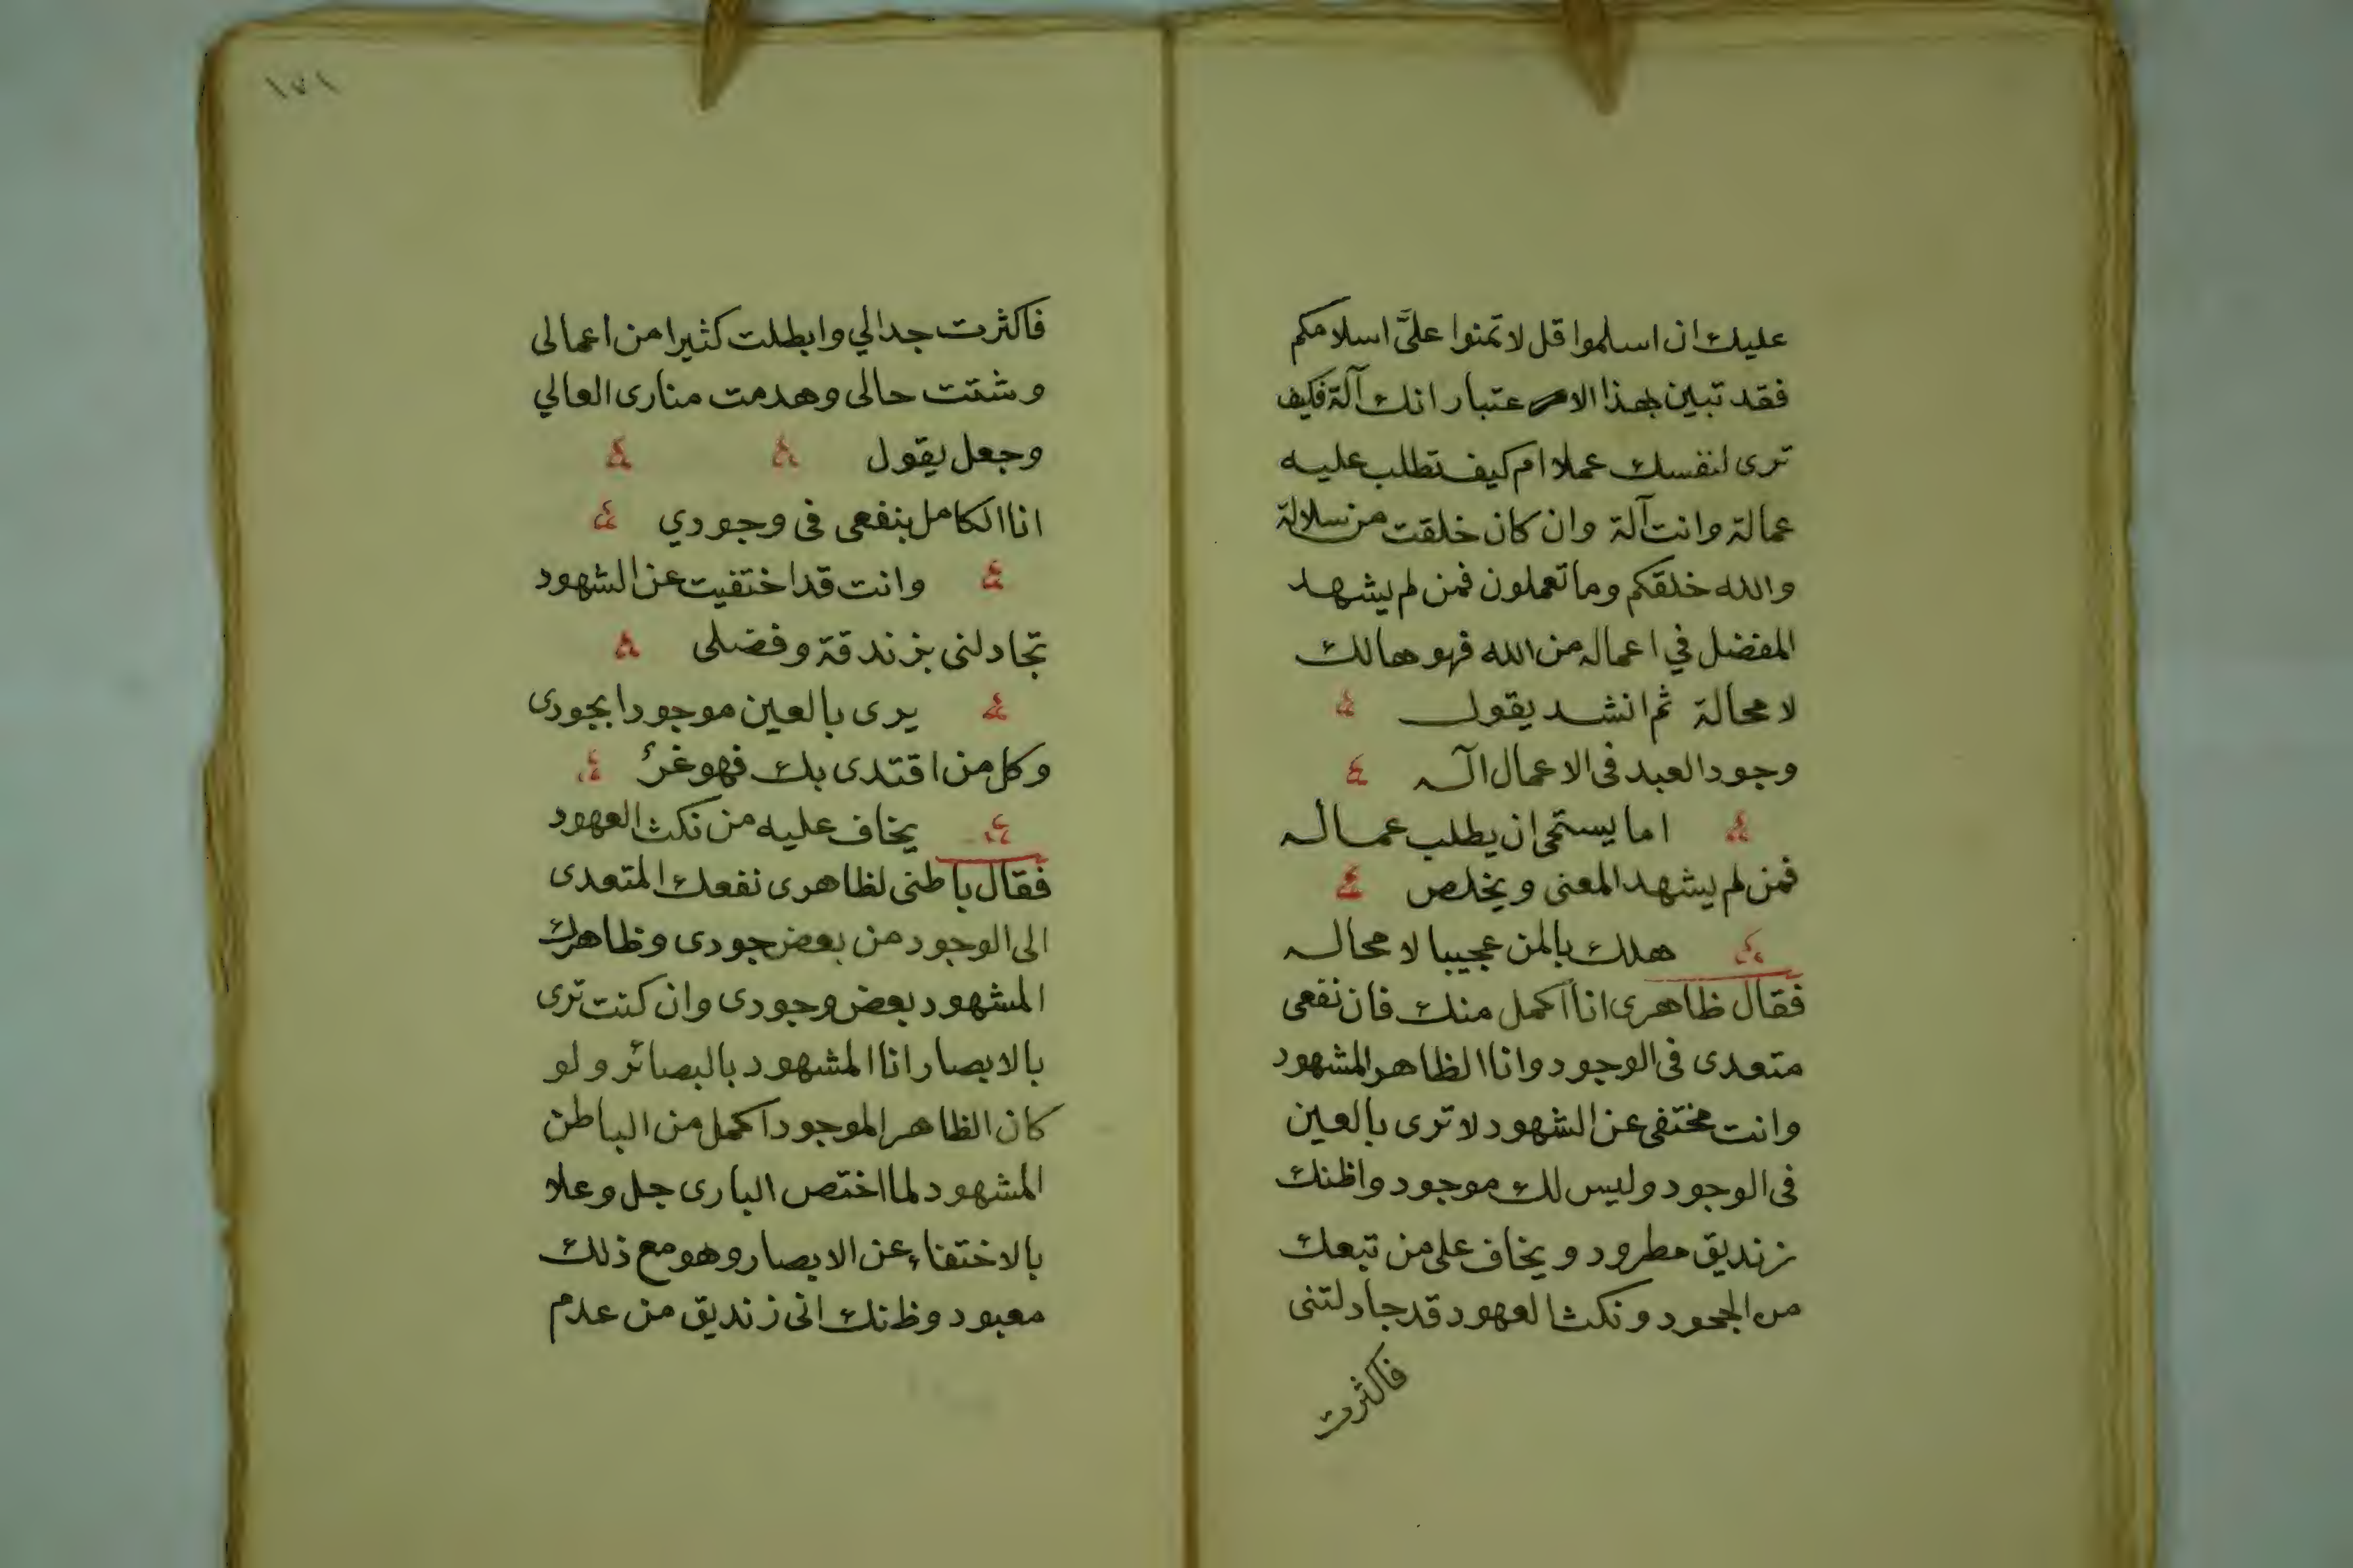 عليك ان اسلموا قل لا تمنوا علىَّ اسلامكم
فقد تبين بهذا الاعتبار انك آلة فكيف
ترى لنفسك عملا ام كيف تطلب عليه
عمالة وانت آلة وان كان خلقت من سلالة
والله خلقكم وما تعملون فمن لم يشهد
المفضل في اعماله من الله فهو هالك
لا محالة ثم انشد يقول
وجود العبد فى الاعمال آله
اما يستحى ان يطلب عماله
فمن لم يشهد المعنى ويخلص
هلك بالمن عجيبا لا محاله
فقال ظاهرى انا اكمل منك فان نفعى
متعدى فى الوجود وانا الظاهر المشهود
وانت مختفى عن الشهود لا ترى بالعين
فى الوجود وليس لك موجود واظنك
زنديق مطرود ويخاف على من تبعك
من الجحود ونكث العهود قد جادلتنى
فاكثرت
١٧١
فاكثرت جدالي وابطلت كثيرا من اعمالى
وشتت حالى وهدمت منارى العالي
وجعل يقول
انا الكامل بنفعى فى وجودي
وانت قد اختفيت عن الشهود
تجادلنى بزندقة وفضلى
يرى بالعين موجودا بجودى
وكل من اقتدى بك فهو غرٌ
يخاف عليه من نكث العهود
فقال باطنى لظاهرى نفعك المتعدى
الى الوجود من بعض جودى وظاهرك
المشهود بعض وجودى وان كنت ترى
بالابصار انا المشهود بالبصائر ولو
كان الظاهر الموجود اكمل من الباطن
المشهود لما اختص البارى جل وعلا
بالاختفاء عن الابصار وهو مع ذلك
معبود وظنك انى زنديق من عدم